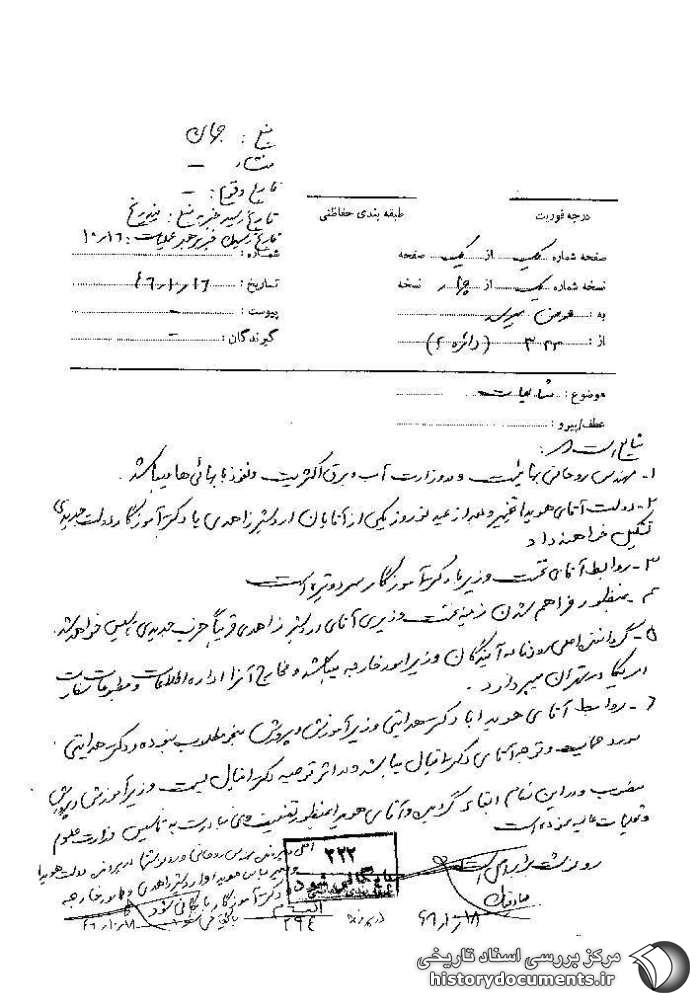 منبع : جهان
منشاء : –
تاریخ وقوع : –
تاریخ رسیدن خبر به منبع :
تاریخ رسیدن خبر به رهبر عملیات : ۱۰/۱۶
درجه فوریت
طبقه بندی حفاظتی
صفحه شماره یک از یک صفحه
شماره :
نسخه شماره یک از چهار نسخه
تاریخ : ۴۶/۱۰/۱۶
به : عرض میرسد
پیوست : –
از : ۳۲۳ (دائره ۲)
گیرندگان : –
موضوع : شایعات
عطف/پیرو :
شایع است که :
۱- مهندس روحانی بهائیست و در وزارت آب و برق اکثریت و نفوذ با بهائی‌ها میباشد .
۲- دولت آقای هویدا تغییر و بعد از عید نوروز یکی از آقایان اردشیر زاهدی یا دکتر آموزگار دولت جدیدی
تشکیل خواهند داد
۳- روابط آقای نخست وزیر با دکتر آموزگار سرد و تیره است
۴- بمنظور فراهم شدن زمینه نخست وزیری آقای اردشیر زاهدی قریباً حزب جدیدی تأسیس خواهد شد .
۵- گرداننده اصلی روزنامه آیندگان وزیر امور خارجه میباشد و مخارج آنرا اداره اطلاعات و مطبوعات سفارت
امریکا در تهران میپردازد .
۶- روابط آقای هویدا با دکتر هدایتی وزیر آموزش و پرورش مطلوب نبوده و دکتر هدایتی
مورد حمایت و توجه آقای دکتر اقبال میباشد و در اثر توصیه دکتر اقبال بسمت وزیر آموزش و پرورش
منصوب و در این مقام ابقاء گردیده و آقای هویدا بمنظور تضعیف وی مبادرت به تأسیس وزارت علوم
و تعلیمات عالیه نموده است
رونوشت برابر اصل است
۴۶/۱۰/۱۸
۲۲۲
بایگانی شود
اصل در پرونده مهندس روحانی و رونوشتها در پرونده دولت هویدا
و اردشیر زاهدی و امور خارجه
و دکتر آموزگار بایگانی شود
۲۹۴
در پرونده
۴۶/۱۰/۱۸
مرکز بررسی اسناد تاریخی
historydocuments.ir